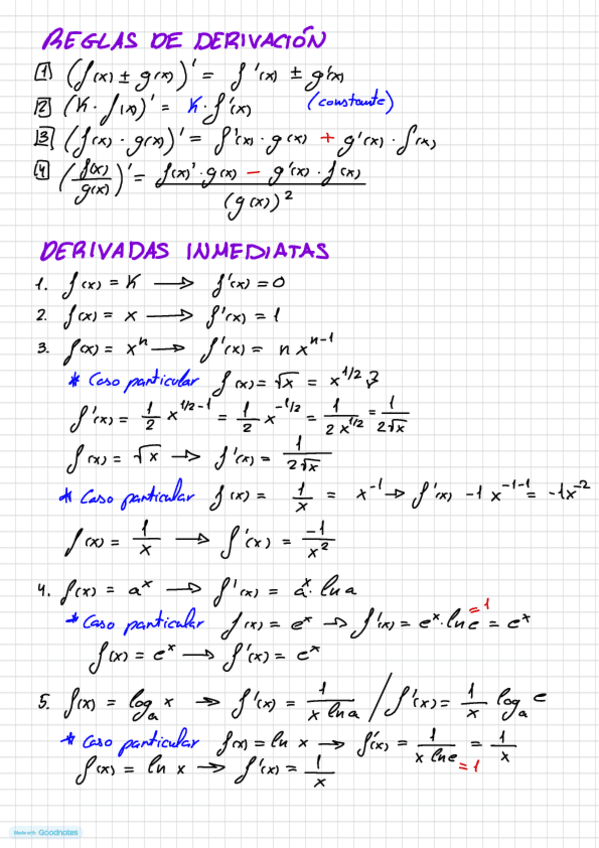 REGLAS DE DERIVACIÓN
1 (f(x) ± g(x))' = f'(x) ± g'(x)
2 (K · f(x))' = K · f'(x) (constante)
3 (f(x) · g(x))' = f'(x) · g(x) + g'(x) · f(x)
4 (f(x)/g(x))' = f(x)' · g(x) − g'(x) · f(x) / (g(x))²
DERIVADAS INMEDIATAS
1. f(x) = K → f'(x) = 0
2. f(x) = x → f'(x) = 1
3. f(x) = xⁿ → f'(x) = n xⁿ⁻¹
* Caso particular f(x) = √x = x^1/2
f'(x) = 1/2 x^1/2-1 = 1/2 x^-1/2 = 1/2x^1/2 = 1/2√x
f(x) = √x → f'(x) = 1/2√x
* Caso particular f(x) = 1/x = x^-1 → f'(x) -1 x^-1-1 = -1x^-2
f(x) = 1/x → f'(x) = -1/x²
4. f(x) = a^x → f'(x) = a^x · ln a
* Caso particular f(x) = e^x → f'(x) = e^x · ln e =1 = e^x
f(x) = e^x → f'(x) = e^x
5. f(x) = log_a x → f'(x) = 1/x ln a / f'(x) = 1/x log_a e
* Caso particular f(x) = ln x → f'(x) = 1/x ln e =1 = 1/x
f(x) = ln x → f'(x) = 1/x
Made with Goodnotes